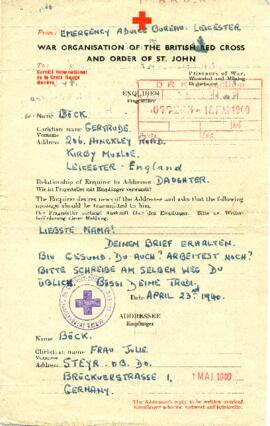 From: EMERGENCY ADVICE BUREAU. LEICESTER
WAR ORGANISATION OF THE BRITISH RED CROSS
AND ORDER OF ST. JOHN
To:
Comité International
de la Croix Rouge
Genève
Prisoners of War,
Wounded and Missing
Department
ENQUIRER
Fragesteller
Name BÖCK.
Christian name GERTRUDE.
Vorname
Address 206, HINCKLEY ROAD.
KIRBY MUXLOE.
LEICESTER - England
Relationship of Enquirer to Addressee DAUGHTER.
Wie ist Fragesteller mit Empfänger verwandt?
The Enquirer desires news of the Addressee and asks that the following
message should be transmitted to him.
Der Fragesteller verlangt Auskunft über den Empfänger. Bitte um Weiter-
beförderung dieser Meldung.
LIEBSTE MAMA!
DEINEN BRIEF ERHALTEN.
BIN GESUND. DU AUCH? ARBEITEST NOCH?
BITTE SCHREIBE AM SELBEN WEG DU
ÜBLICH. BUSSI DEINE TRUDI.
Date APRIL 23rd 1940.
ADDRESSEE
Empfänger
Name BÖCK.
Christian name FRAU JULIE
Vorname
Address STEYR. OB. DO.
BRÜCKNERSTRASSE 1,
GERMANY.
1 MAI 1940
The Addressee's reply to be written overleaf.
Empfänger schreibe Antwort auf Rückseite.